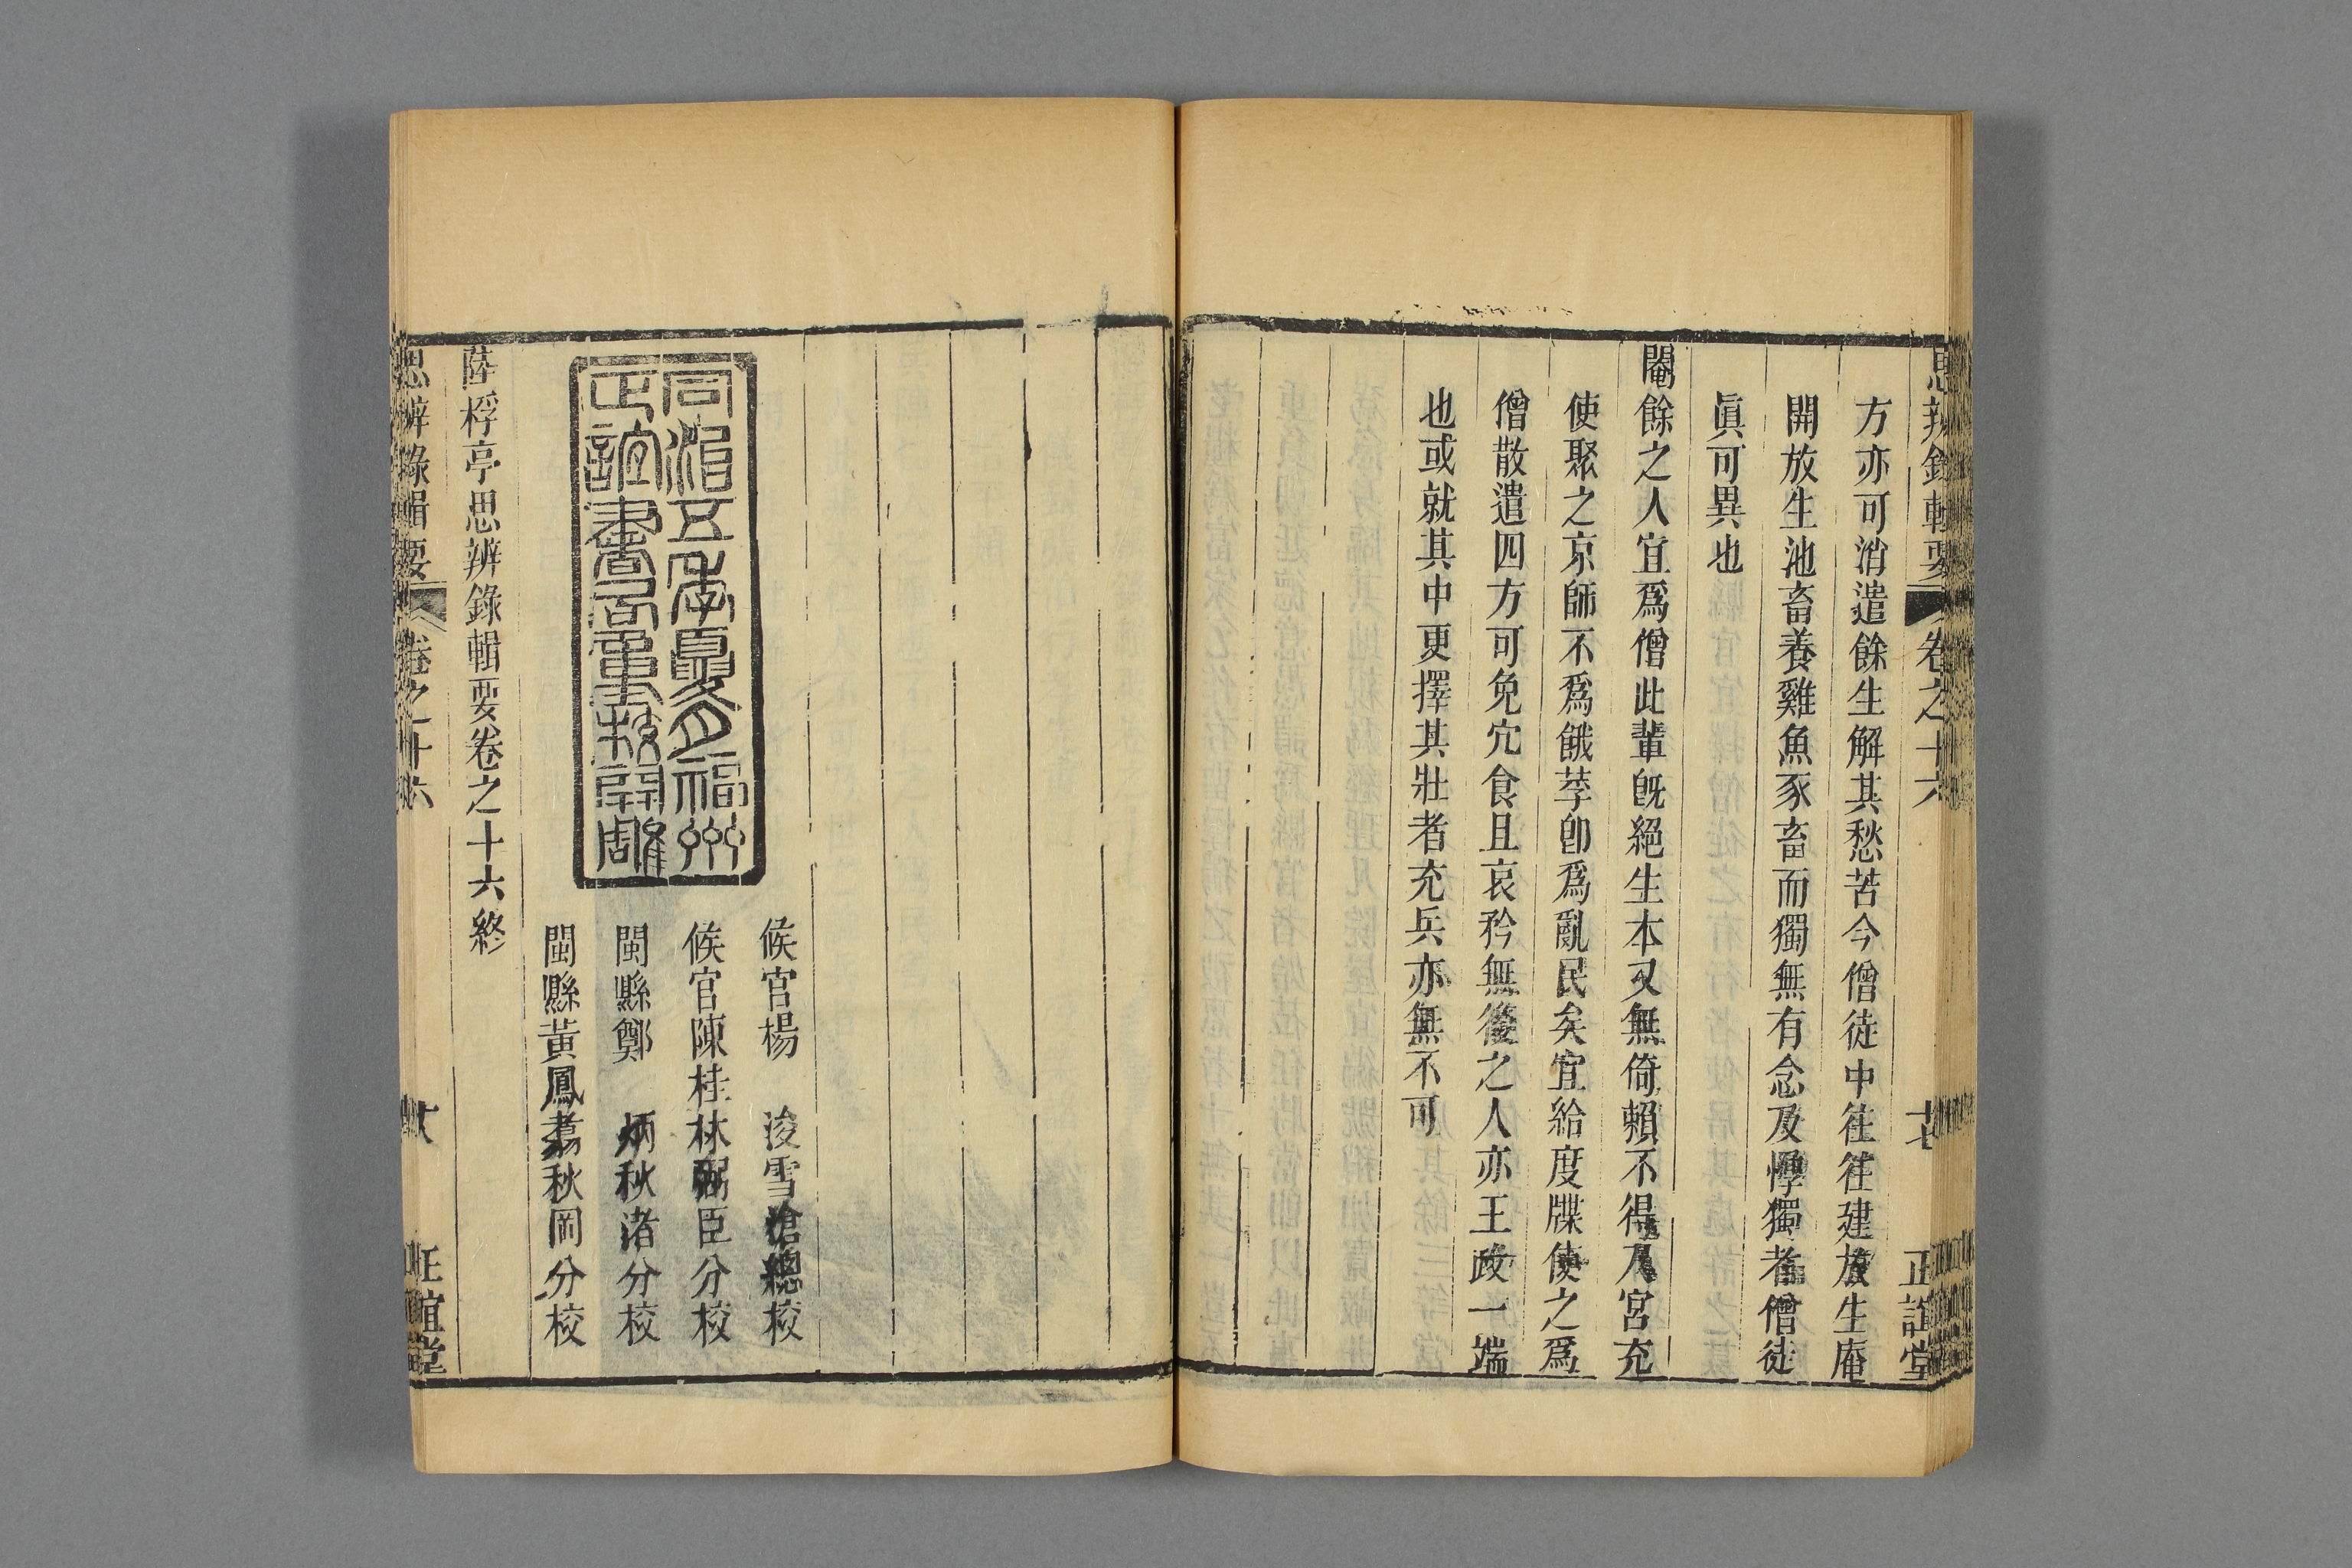 思辨錄輯要 卷之十六 十七 正誼堂
方亦可消遣餘生解其愁苦今僧徒中往往建放生庵
開放生池畜養雞魚豕畜而獨無有念及惸獨者僧徒
眞可異也
閹餘之人宜爲僧此輩旣絕生本又無倚賴不得入宮充
使聚之京師不爲餓莩卽爲亂民矣宜給度牒使之爲
僧散遣四方可免宂食且哀矜無後之人亦王政一端
也或就其中更擇其壯者充兵亦無不可
候官楊 浚雪滄總校
候官陳桂林弼臣分校
閩縣鄭 炳秋渚分校
閩縣黃鳳翥秋岡分校
同治五年夏月福州
正誼書局重校開雕
陸桴亭思辨錄輯要卷之十六終
思辨錄輯要 卷之十六 正誼堂